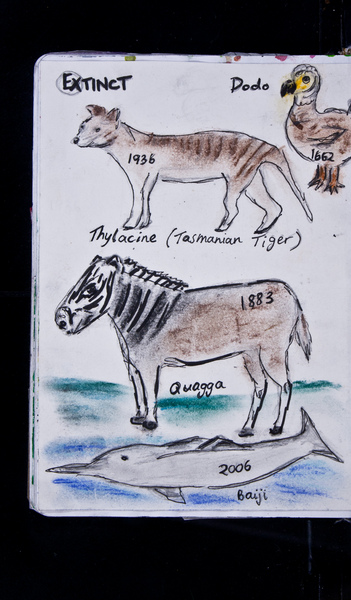 EXTINCT
Dodo
1936
1662
Thylacine (Tasmanian Tiger)
1883
Quagga
2006
Baiji